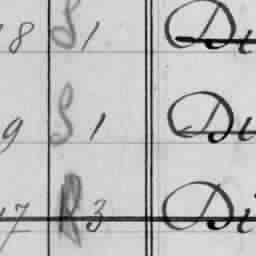 18 S 1 Di
9 S 1 Du
17 R 3 Di